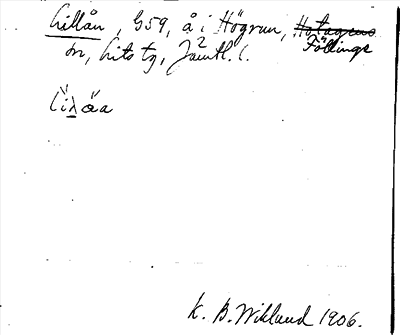 Lillån, G59, å i Högrun,
Föllinge
sn, Lits tg, Jämtl. l.
2
K. B. Wiklund 1906.